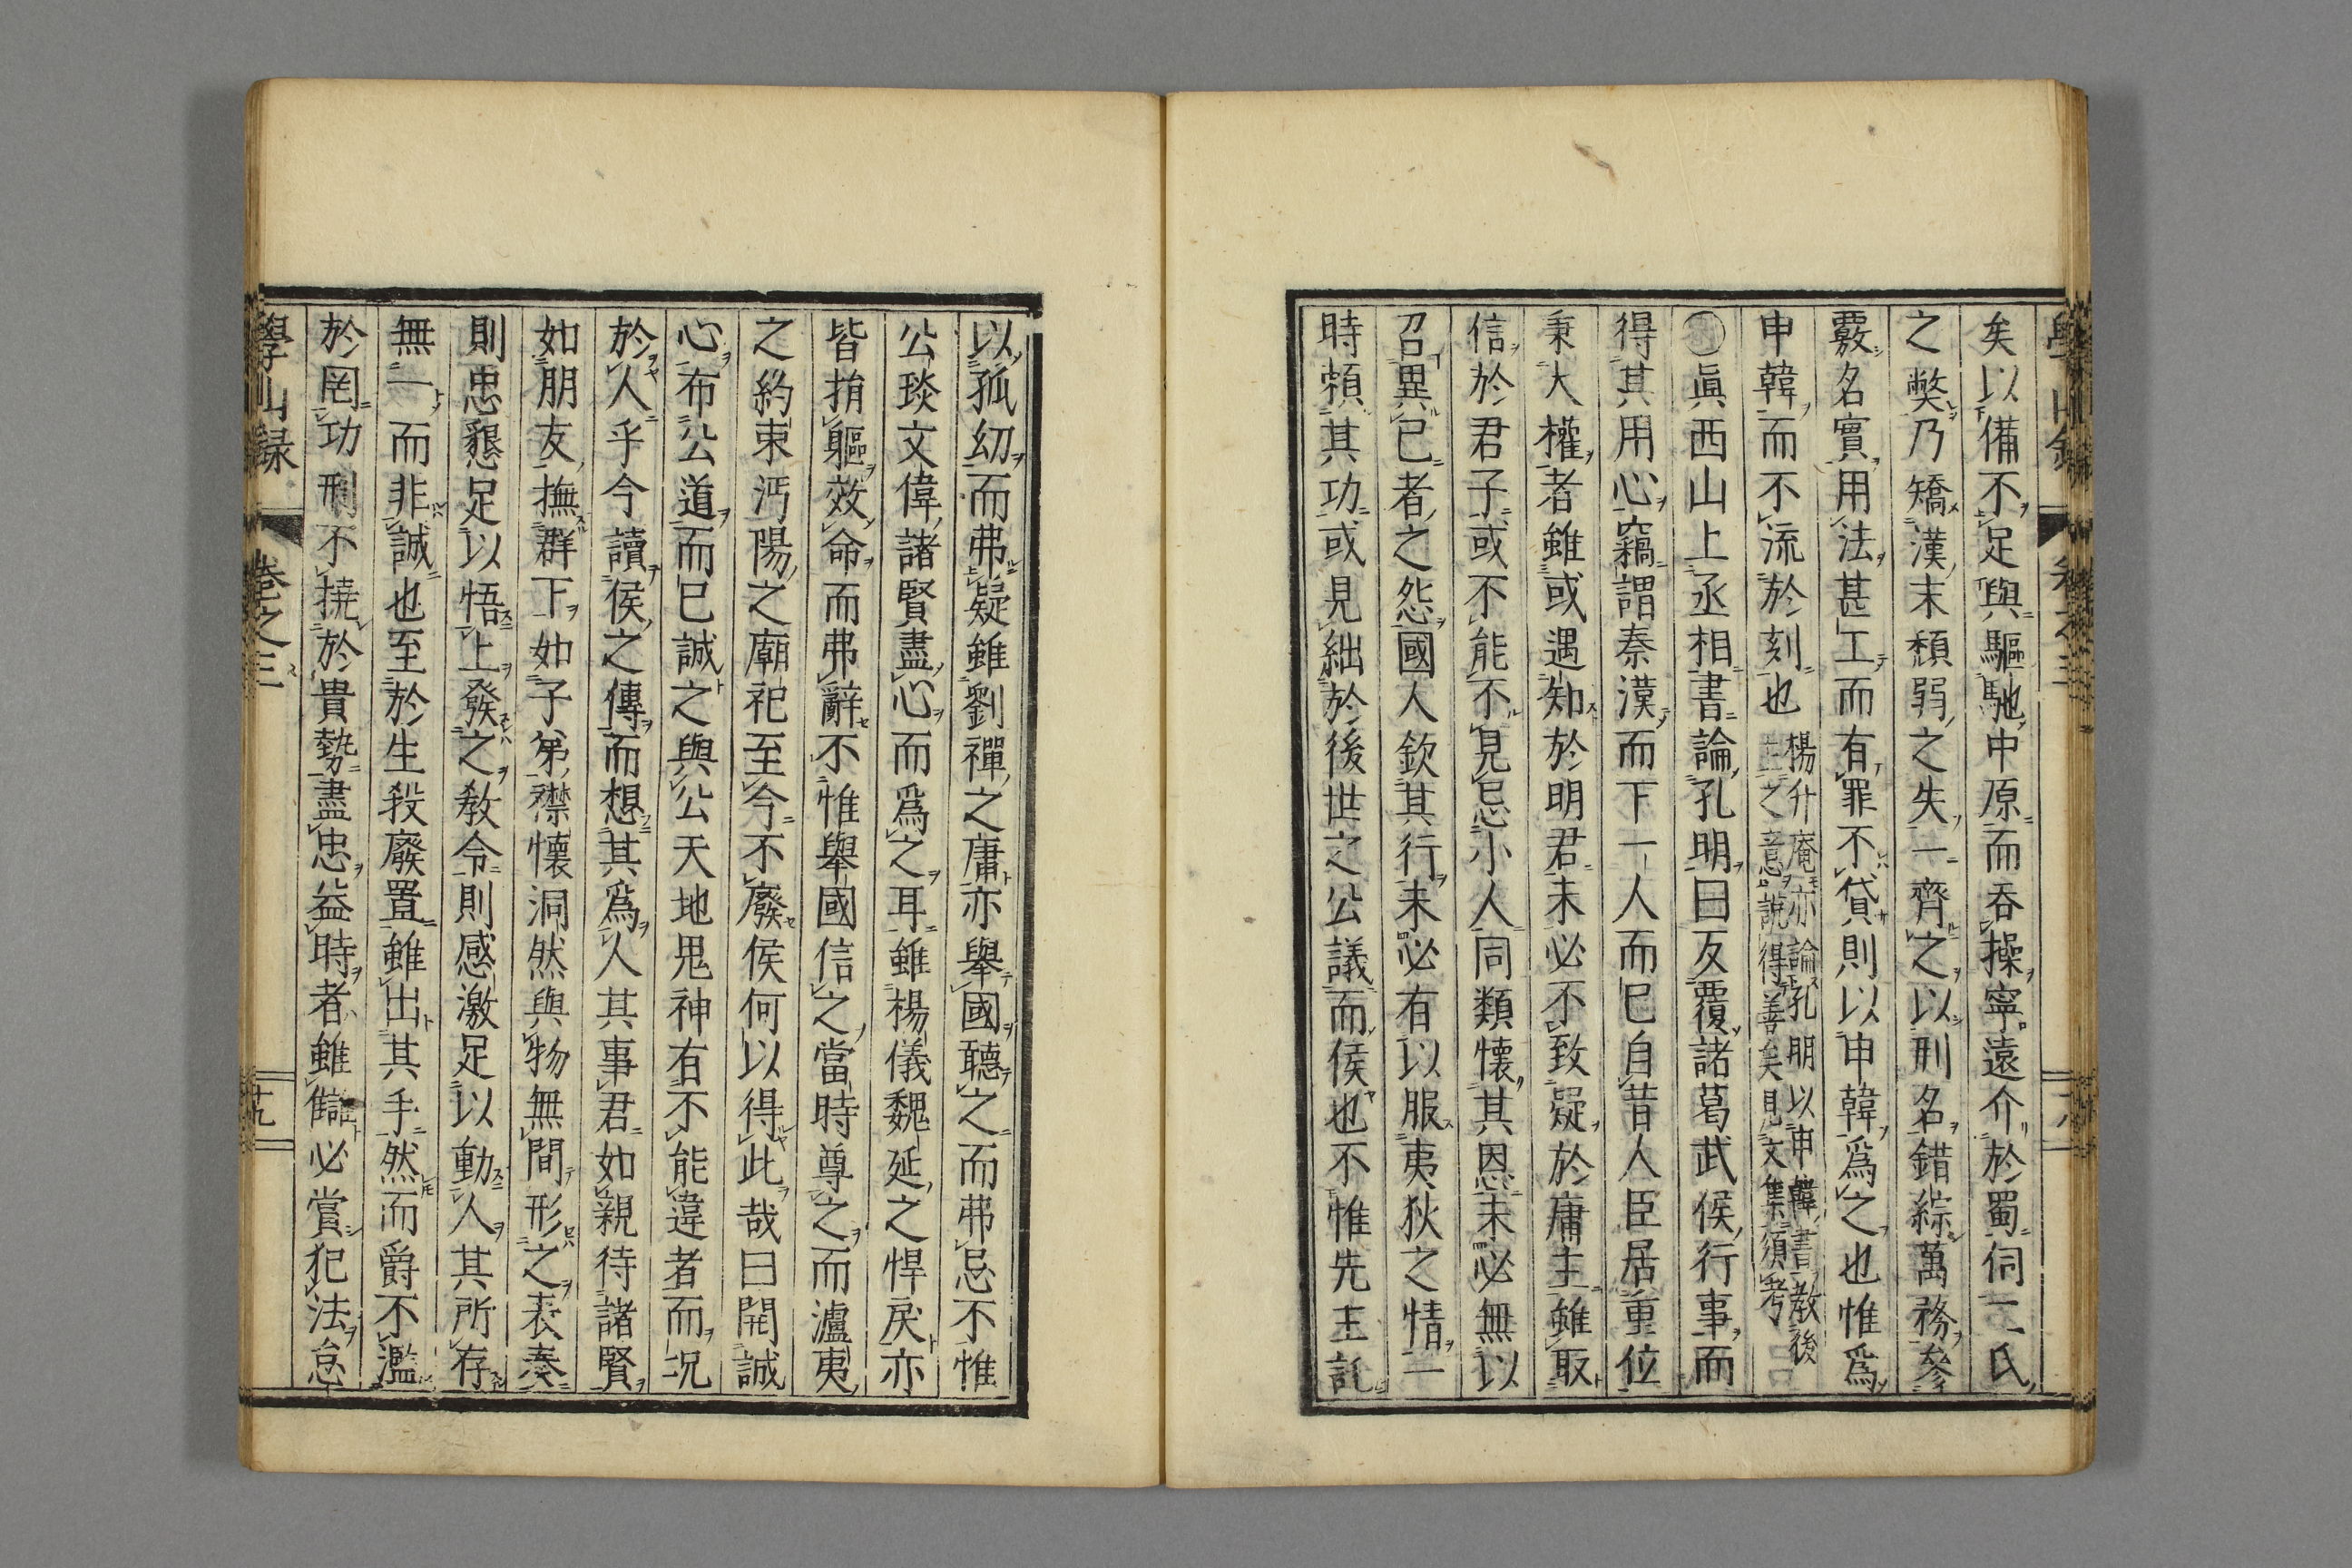 矣以備不足與驅馳中原而吞操寧遠介於蜀伺二氏
之獘乃矯漢末頽弱之失一齊之以刑名錯綜萬務參
覈名實用法甚工而有罪不貸則以申韓爲之也惟爲
申韓而不流於刻也楊升庵亦論孔明以申韓書教後
主之意説得善矣見文集須考
眞西山上丞相書論孔明曰反覆諸葛武侯行事而
得其用心竊謂秦漢而下一人而已自昔人臣居重位
秉大權者雖或遇知於明君未必不致疑於庸主雖取
信於君子或不能不見忌小人同類懷其恩未必無以
召異已者之怨國人欽其行未必有以服夷狄之情一
時頼其功或見絀於後世之公議而侯也不惟先主託
以孤㓜而弗疑雖劉禪之庸亦舉國聽之而弗忌不惟
公琰文偉諸賢盡心而爲之耳雖楊儀魏延之悍戾亦
皆捐軀效命而弗辭不惟舉國信之當時尊之而瀘夷
之約束沔陽之廟祀至今不廢侯何以得此哉曰開誠
心布公道而已誠之與公天地鬼神有不能違者而况
於人乎今讀侯之傳而想其爲人其事君如親待諸賢
如朋友撫群下如子弟襟懷洞然與物無間形之表奏
則忠懇足以悟上發之教令則感激足以動人其所存
無一而非誠也至於生殺廢置雖出其手然而爵不濫
於罔功刑不撓於貴勢盡忠益時者雖讎必賞犯法怠
學山録
卷之三
十九